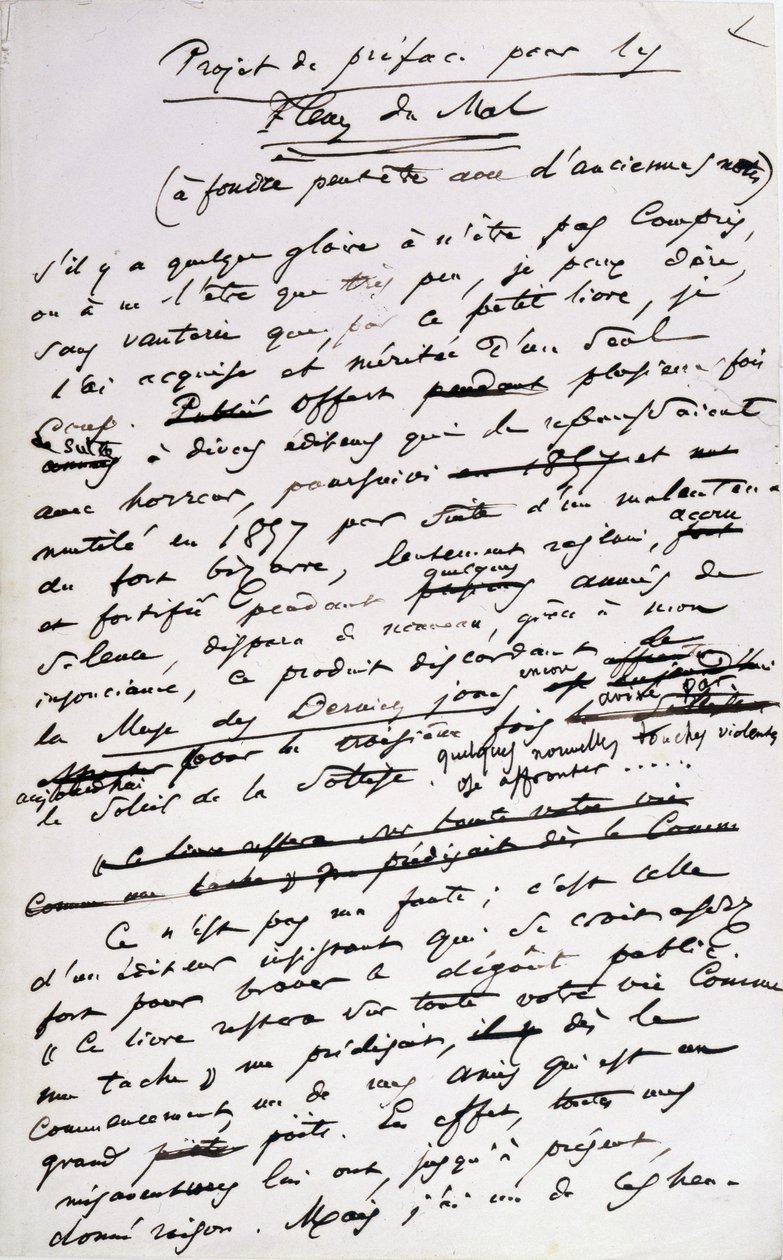 Projet de préface pour les
Fleurs du Mal
(à fondre peutêtre avec d'anciennes notes)
S'il y a quelque gloire à n'être pas compris,
ou à ne l'être que très peu, je peux dire,
sans vanterie que, par ce petit livre, je
l'ai acquise et méritée d'un seul
coup. Publié Offert pendant plusieurs fois
de suite
années à divers éditeurs qui le repoussaient
avec horreur, poursuivi en 1857 et
mutilé en 1857 par suite d'un malentendu
du fort bizarre, lentement rajeuni, accru
et fortifié pendant quelques années de
silence, disparu de nouveau, grâce à mon
insouciance, ce produit discordant de
la Muse des Derniers jours encore avivé par
pour la troisième fois
quelques nouvelles touches violentes
aujourd'hui
le Soleil de la Sottise. ose affronter ......
« Ce livre restera sur toute votre vie
comme une tache » me prédisait dès le Comm
Ce n'est pas ma faute; c'est celle
d'un éditeur insistant qui se croit assez
fort pour braver le dégoût public.
« Ce livre restera sur toute votre vie comme
une tache » me prédisait, dès le
commencement, un de mes amis qui est un
grand poëte poëte. En effet, toutes mes
mésaventures lui ont, jusqu'à présent,
donné raison. Mais j'ai un de ces heu-